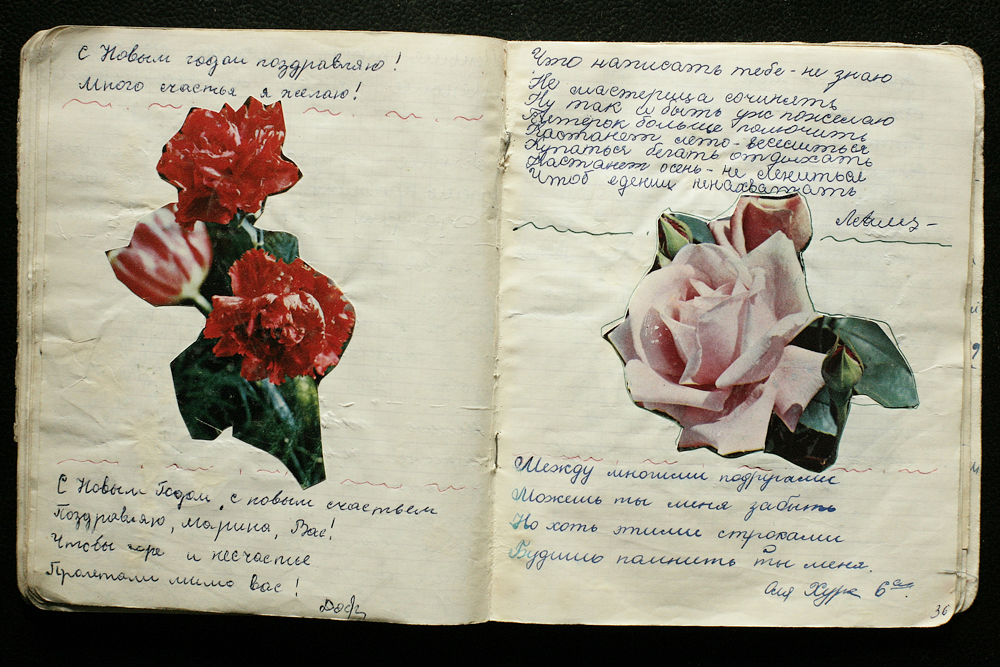 С Новым годом поздравляю!
Много счастья я желаю!
С Новым Годом, с новым счастьем
Поздравляю, Марина, Вас!
Чтобы горе и несчастье
Пролетали мимо вас!
Что написать тебе - не знаю
Не мастерица сочинять
Ну так и быть уж пожелаю
Пятёрок больше получить
Настанет лето - веселиться
Купаться бегать отдыхать
Настанет осень - не лениться
Чтоб едениц ненахватать
Между многими подругами
Можешь ты меня забыть
Но хоть этими строками
Будишь помнить ты меня.
6
36